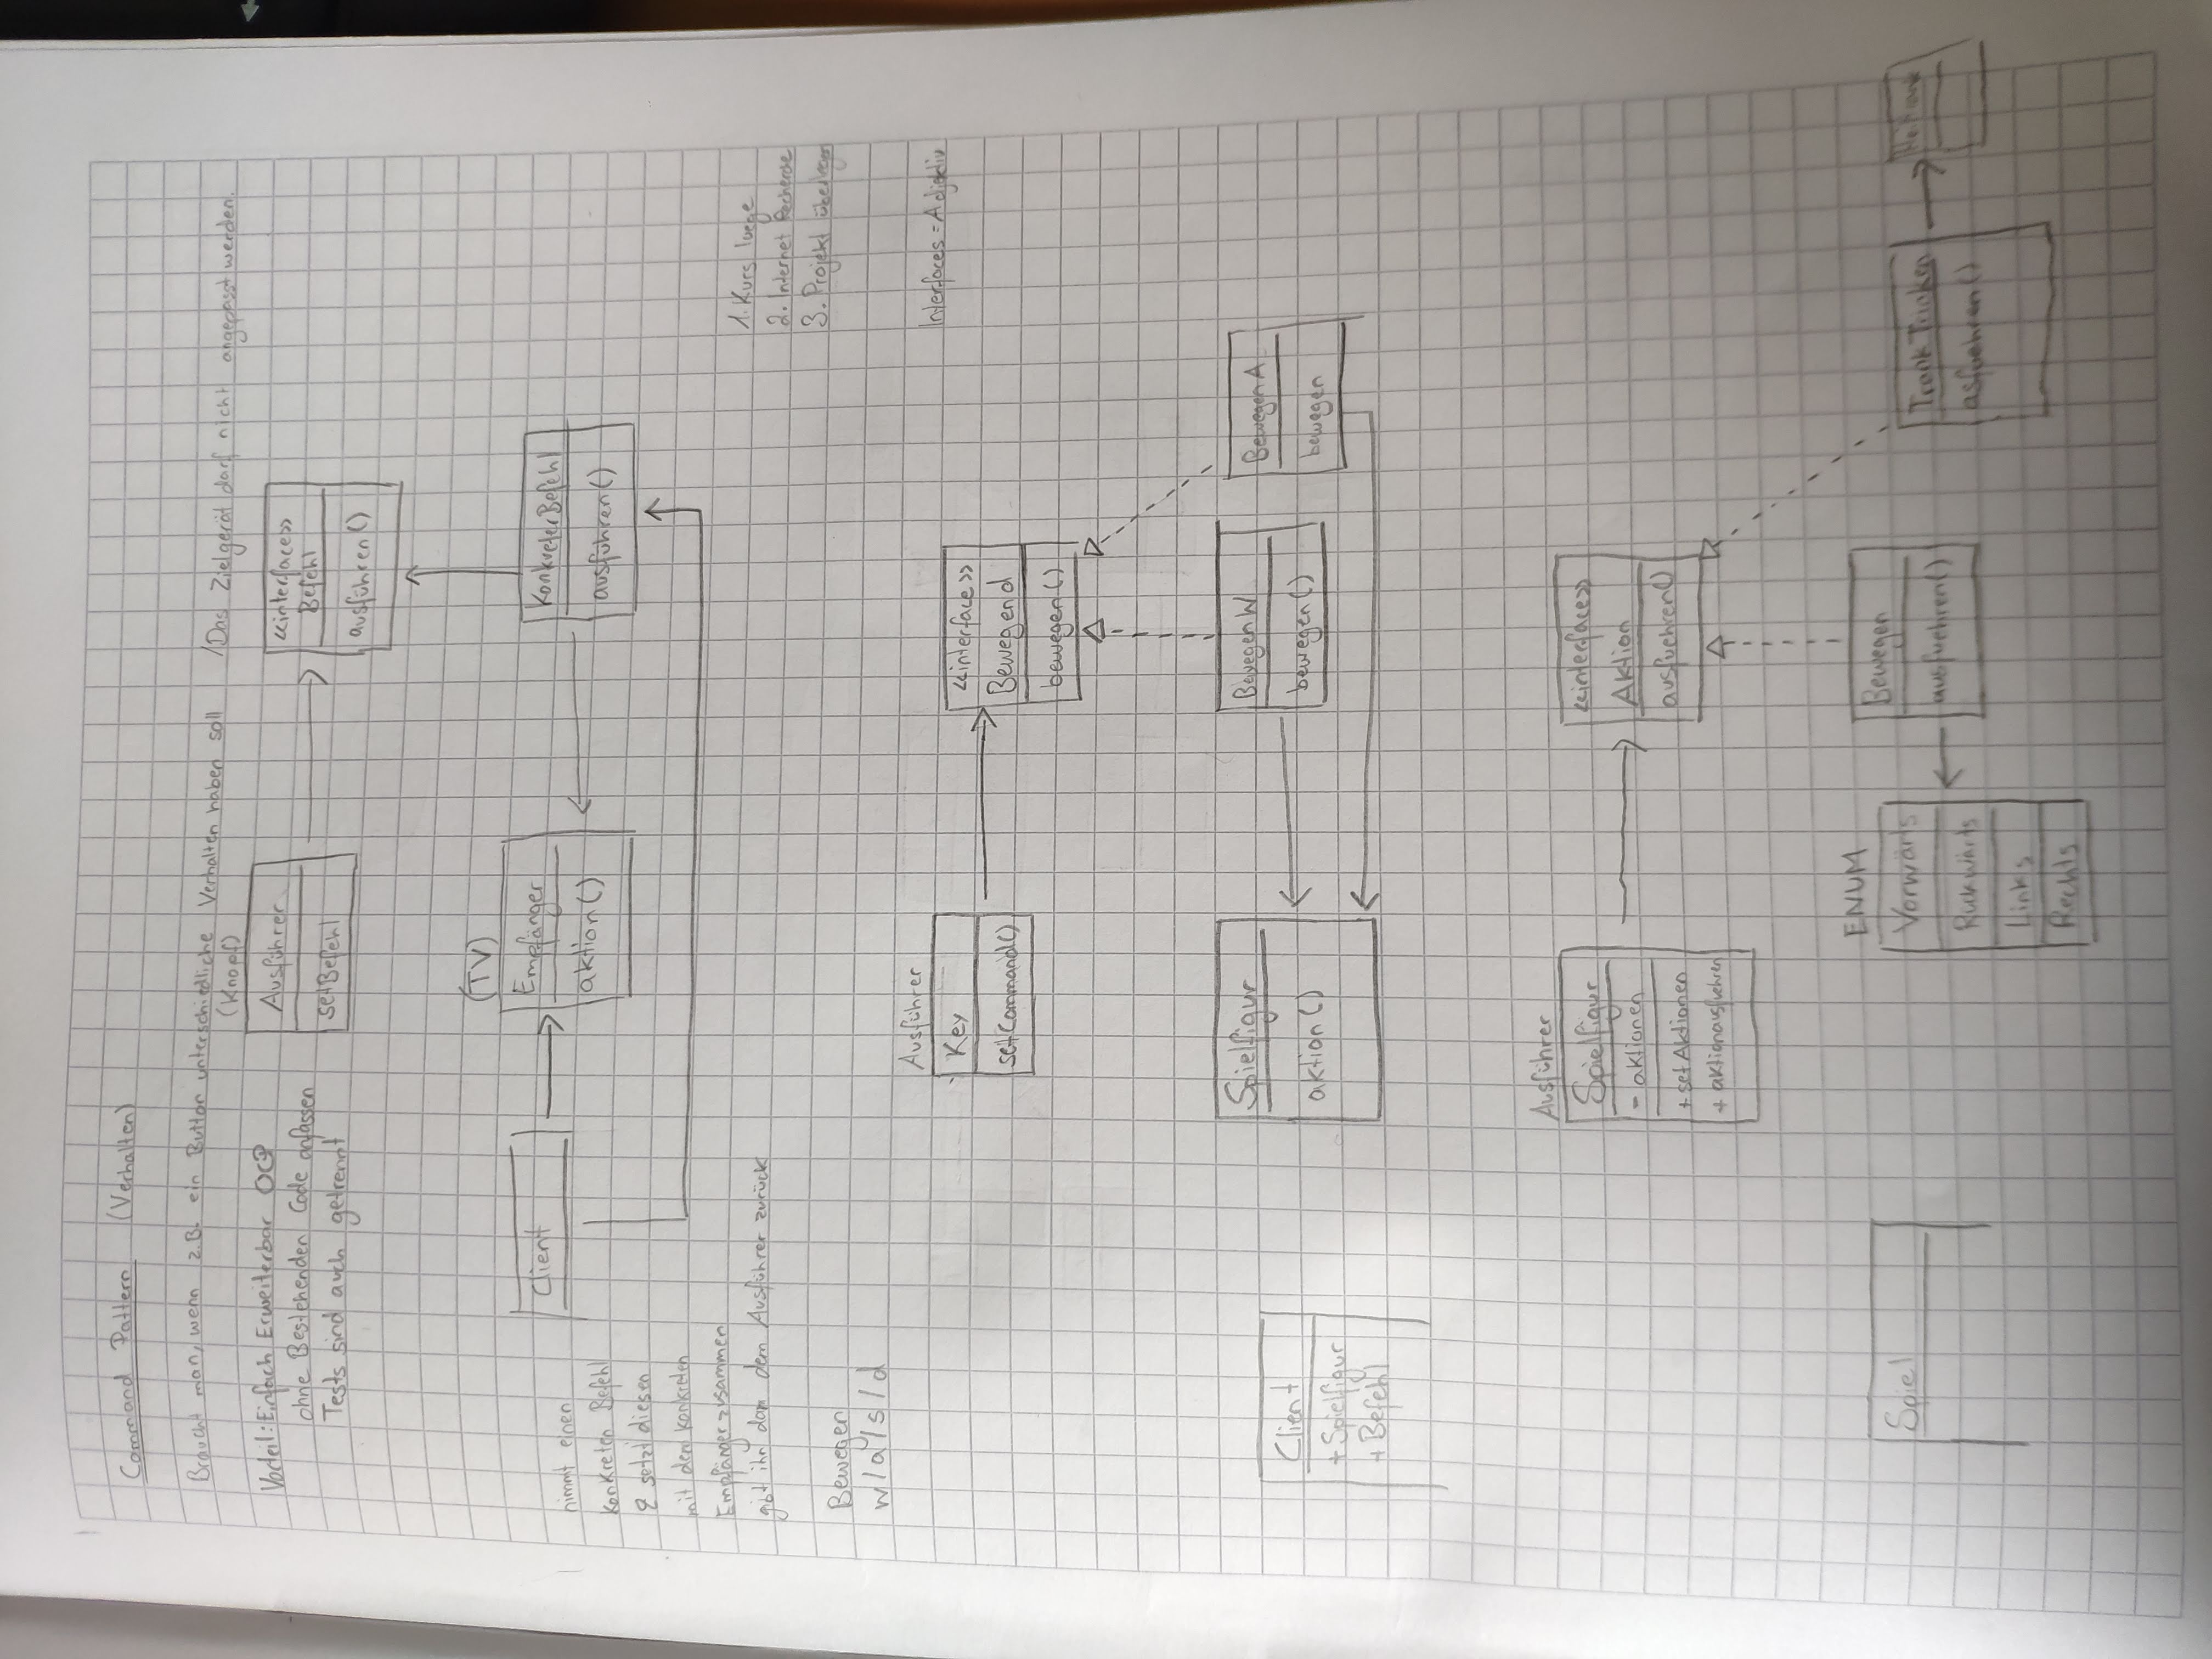 Command Pattern (Verhalten)
Braucht man, wenn z.B. ein Button unterschiedliche Verhalten haben soll
(Knopf)
! Das Zielgerät darf nicht angepasst werden.
Vorteil: Einfach Erweiterbar OCP
ohne Bestehenden Code anfassen
Tests sind auch getrennt
Ausführer
setBefehl
<<interface>>
Befehl
ausführen()
(TV)
Client
Empfänger
aktion()
KonkreterBefehl
ausführen()
nimmt einen
konkreten Befehl
& setzt diesen
mit dem konkreten
Empfänger zusammen
gibt ihn dan dem Ausführer zurück
1. Kurs luege
2. Internet Recherche
3. Projekt überlegen
Bewegen
w/a/s/d
Interfaces = Adjektiv
Ausführer
Key
setCommand()
<<interface>>
Bewegend
bewegen()
Client
+ Spielfigur
+ Befehl
Spielfigur
aktion()
Bewegen W
bewegen()
Bewegen A
bewegen
Ausführer
Spielfigur
- aktionen
+ setAktionen
+ aktionausfuehren
<<interface>>
Aktion
ausfuehren()
Spiel
ENUM
Vorwärts
Rückwärts
Links
Rechts
Bewegen
ausfuehren()
Trank Trinken
asfuehren()